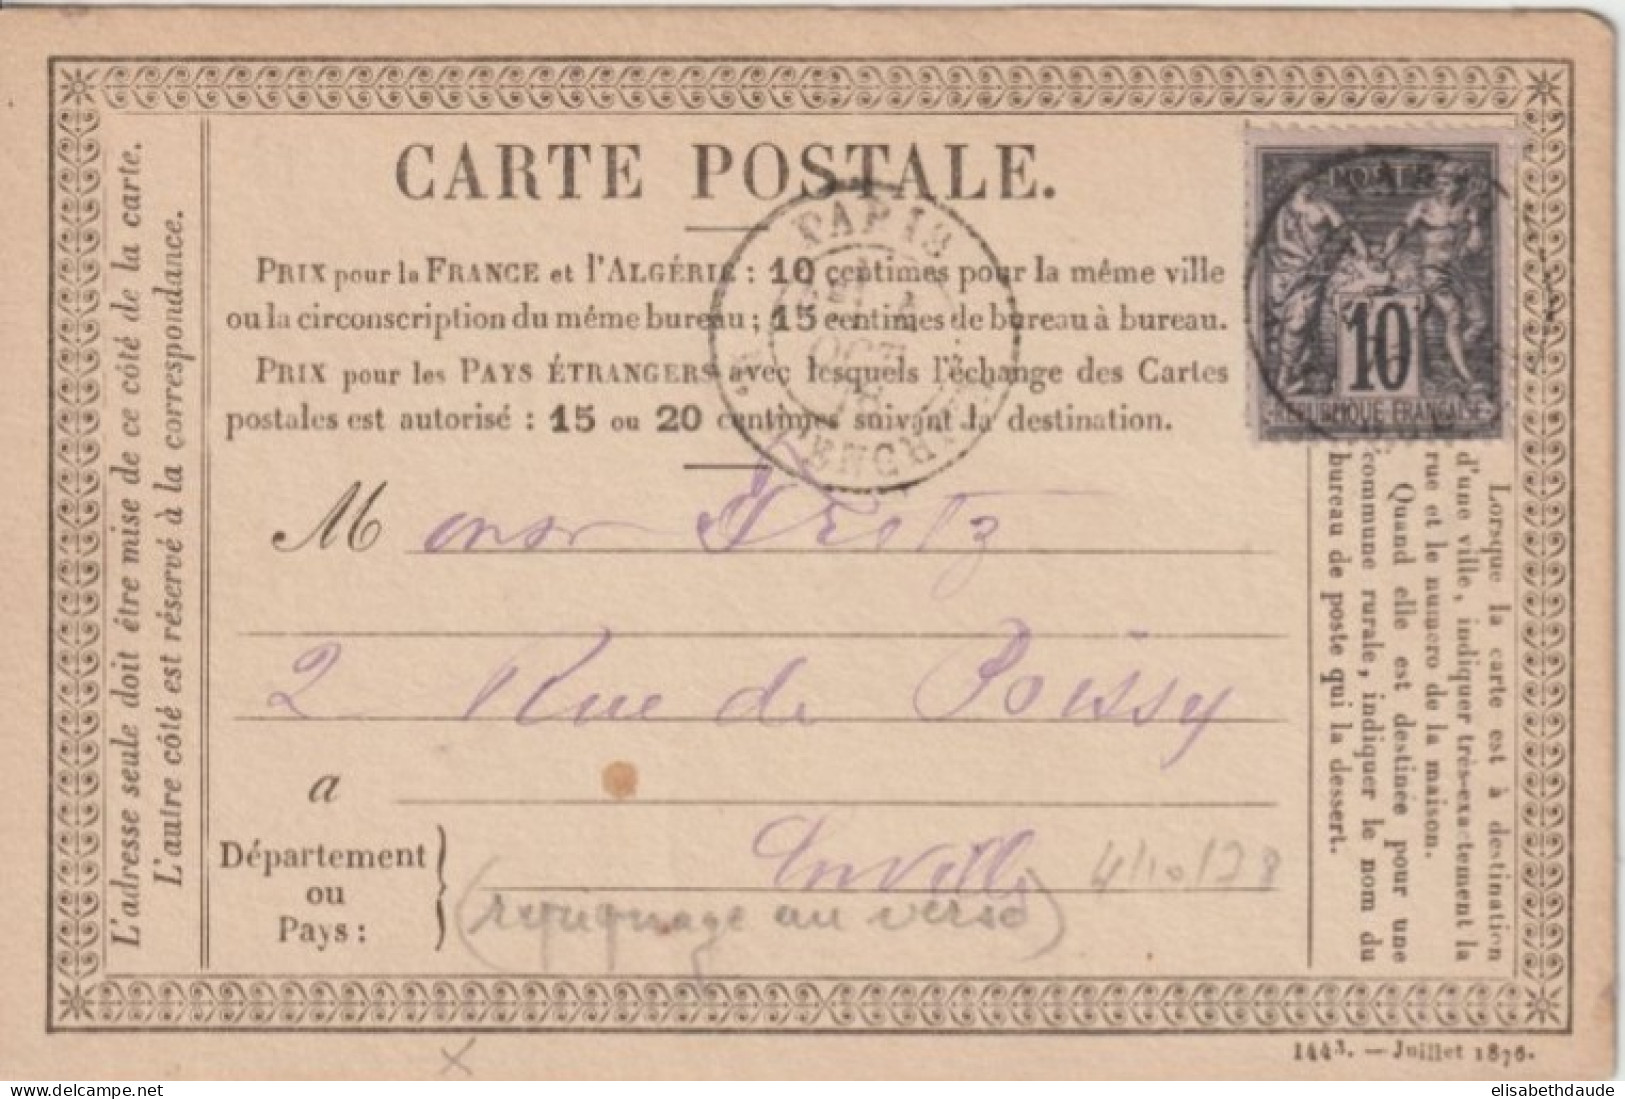 CARTE POSTALE.
PRIX pour la FRANCE et l'ALGÉRIE : 10 centimes pour la même ville
ou la circonscription du même bureau ; 15 centimes de bureau à bureau.
PRIX pour les PAYS ÉTRANGERS avec lesquels l'échange des Cartes
postales est autorisé : 15 ou 20 centimes suivant la destination.
L'adresse seule doit être mise de ce côté de la carte.
L'autre côté est réservé à la correspondance.
POSTE
10
REPUBLIQUE FRANÇAISE
PARIS
OCT
M onsr
2 Rue de Poissy
a
Département
ou
Pays :
Enville
4/10/78
au verso)
Lorsque la carte est à destination
d'une ville, indiquer très-exactement la
rue et le numéro de la maison.
Quand elle est destinée pour une
commune rurale, indiquer le nom du
bureau de poste qui la dessert.
1443. — Juillet 1876.
elisabethdaude